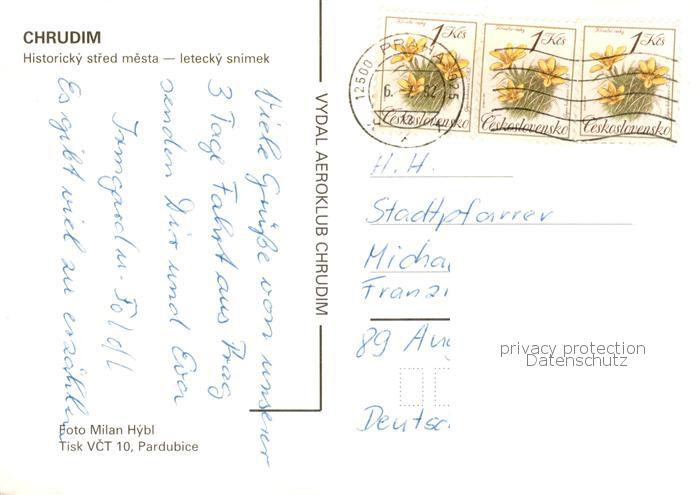 CHRUDIM
Historický střed města — letecký snimek
Viele Grüße von unserer
3 Tage Fahrt aus Prag
senden Dir und Eva
Irmgard u.
Es gibt viel zu erzählen
Foto Milan Hýbl
Tisk VČT 10, Pardubice
VYDAL AEROKLUB CHRUDIM
1 Kčs
Československo
1 Kčs
Československo
1 Kčs
Československo
12500 PRAHA 025
H. H.
Stadtpfarrer
Micha
Franzi
89 Aug
Deutsc
privacy protection
Datenschutz